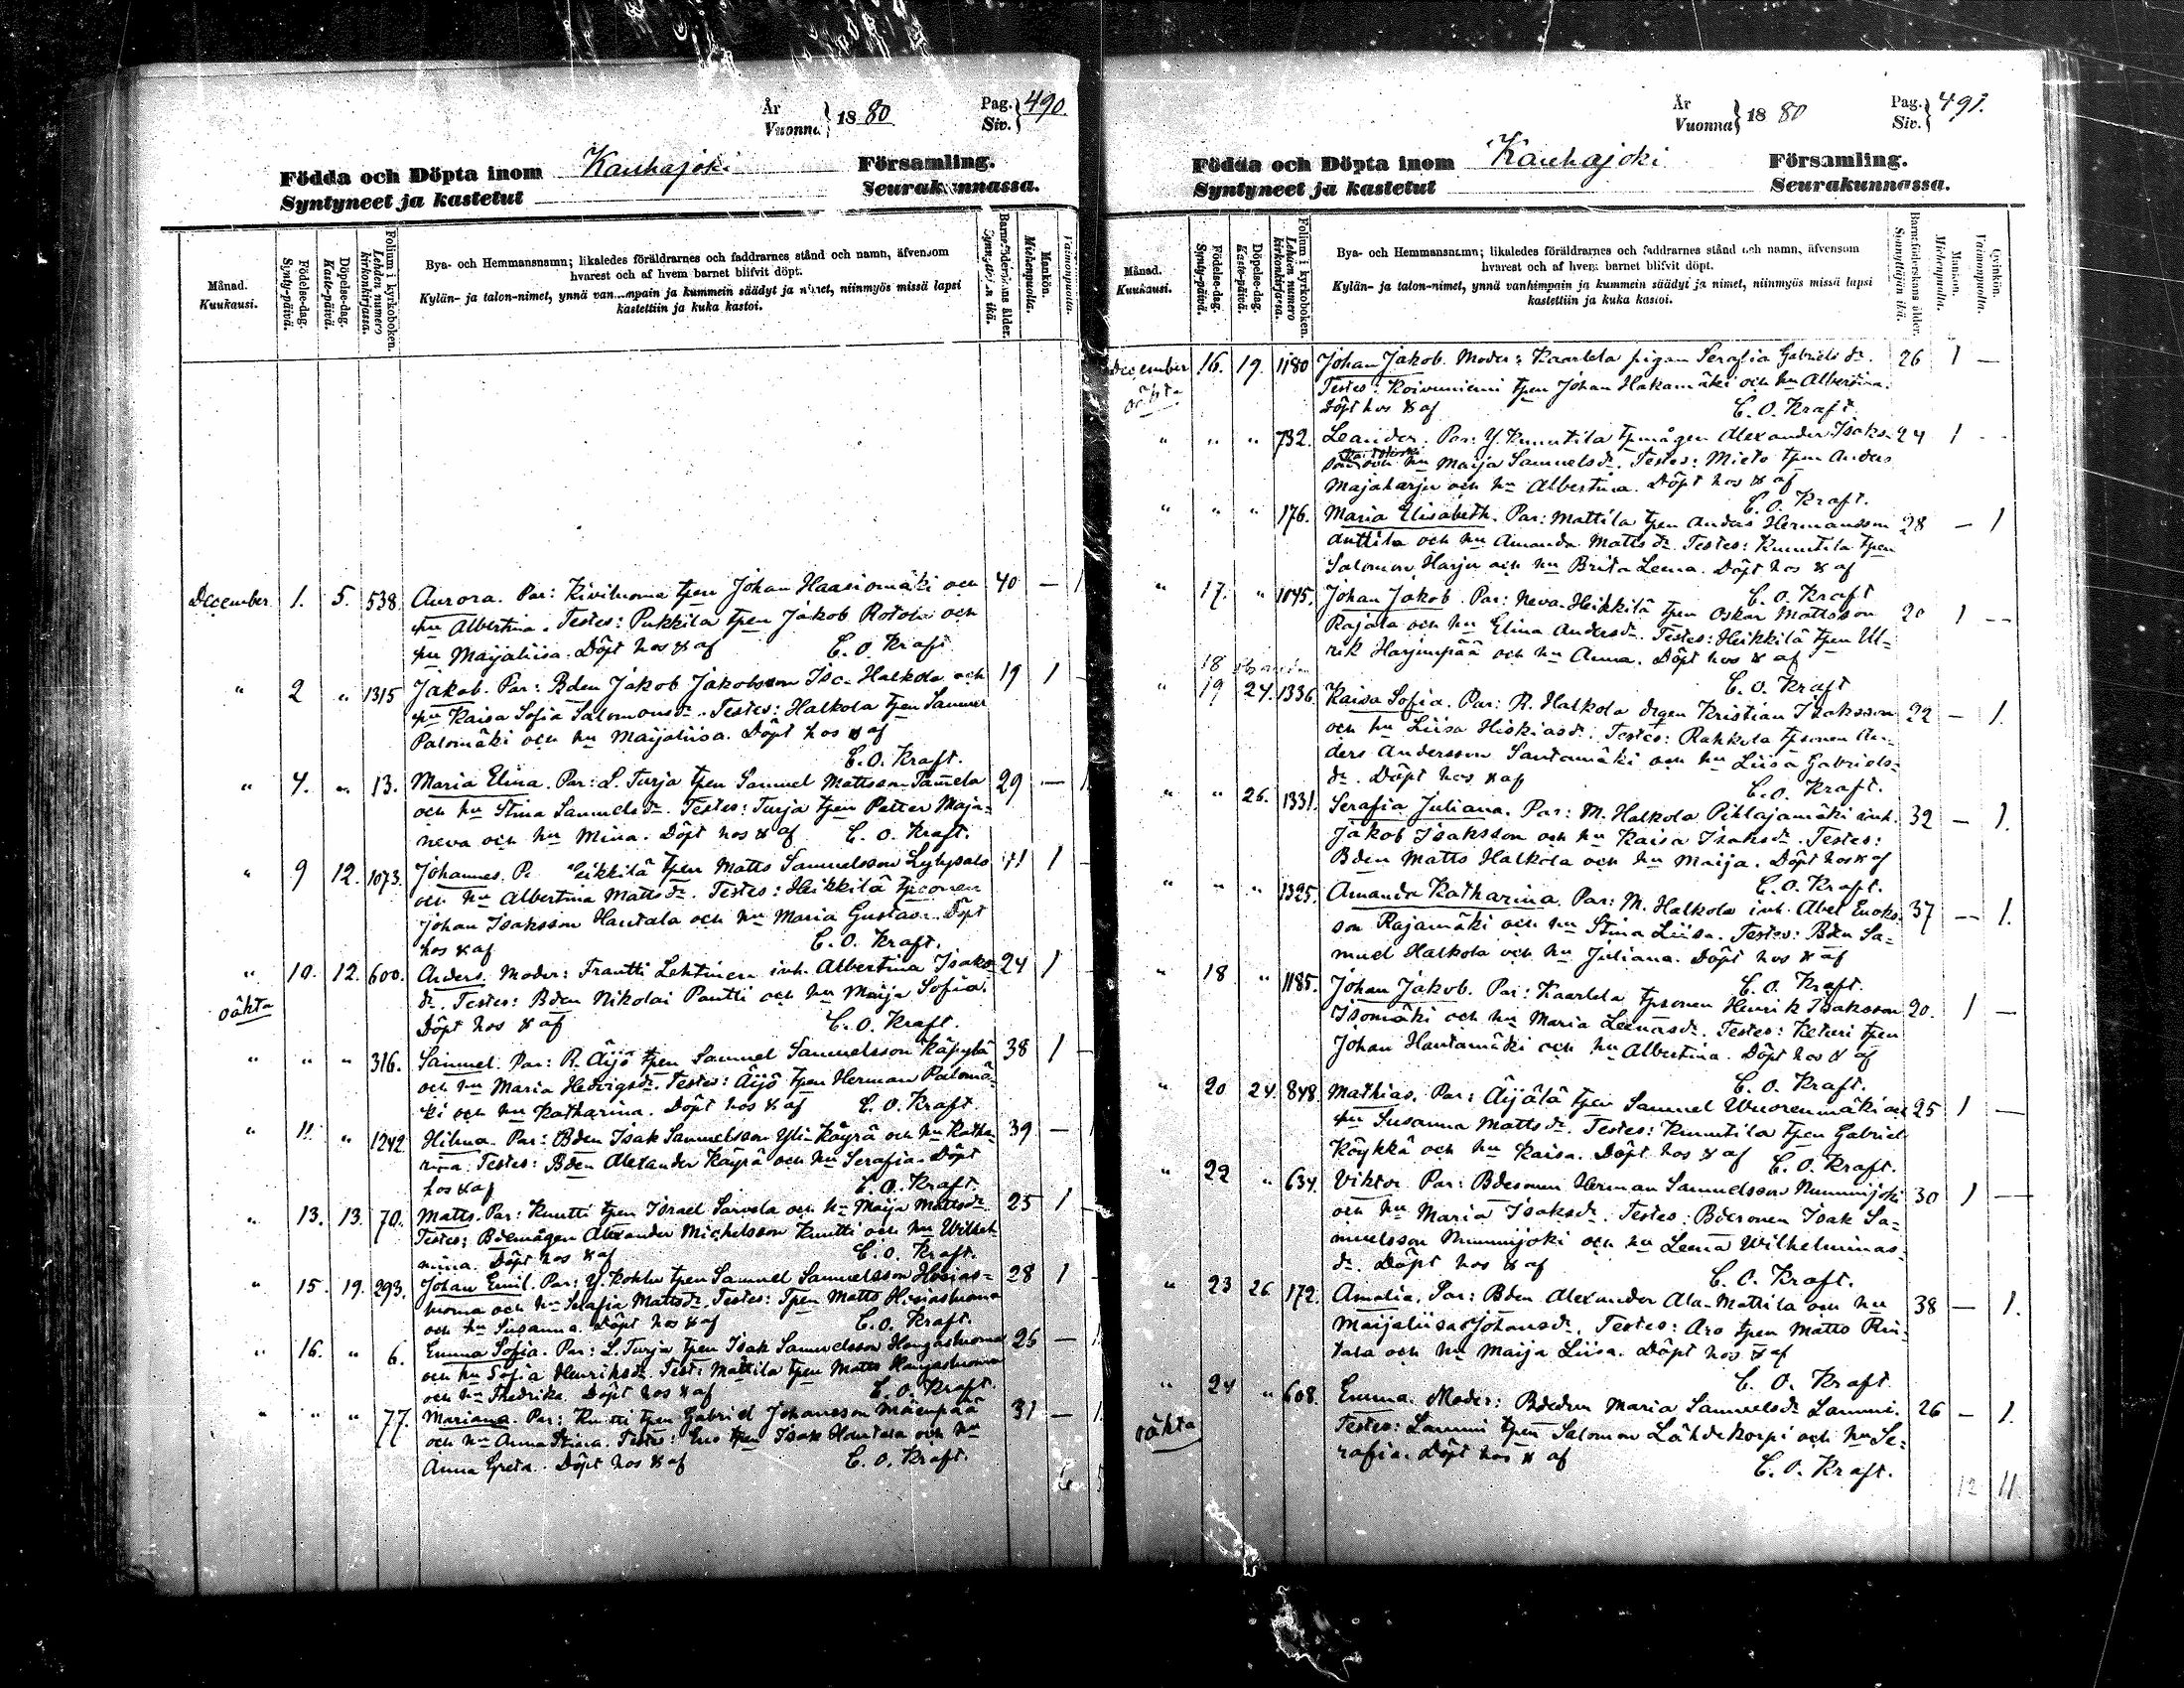 År
Vuonna } 1880
Pag.
Siv. } 490.
Födda och Döpta inom Kauhajoki Församling.
Syntyneet ja kastetut Seurakunnassa.
Månad.
Kuukausi.
Födelse-dag.
Synty-päivä.
Döpelse-dag.
Kaste-päivä.
Folium i kyrkoboken.
Lehden numero kirkonkirjassa.
Bya- och Hemmansnamn; likaledes föräldrarnes och faddrarnes stånd och namn, äfvensom
hvarest och af hvem barnet blifvit döpt.
Kylän- ja talon-nimet, ynnä van...mpain ja kummein säädyt ja nimet, niinmyös missä lapsi
kastettiin ja kuka kastoi.
Barnaföderskans ålder.
Synnyttäjän ikä.
Mankön.
Miehenpuolta.
Vaimonpuolta.
December 1. 5. 538. Aurora. Par: Kiviluoma tpen Johan Haasiomäki och 40 — 1
hu Albertina. Testes: Pukkila tpen Jakob Rotola och
hu Maijaliisa. Döpt hos & af C. O. Kraft.
" 2 " 1315 Jakob. Par: Bden Jakob Jakobsson Iso-Halkola och 19 1
hu Kaisa Sofia Salomonsdr. Testes: Halkola tpen
Palomäki och hu Maijaliisa. Döpt hos & af
C. O. Kraft.
" 4. " 13. Maria Elina. Par: L. Turja tpen Samuel Mattsson Tammela 29 — 1
och hu Stina Samuelsdr. Testes: Turja tpen Petter Maja-
neva och hu Mina. Döpt hos & af C. O. Kraft.
" 9 12. 1073. Johannes. P. Heikkilä tpen Matts Samuelsson Lylysalo 41 1
och hu Albertina Mattsdr. Testes: Heikkilä tpsonen
Johan Isaksson Hautala och hu Maria Gustas. Döpt
hos & af C. O. Kraft.
" 10. 12. 600. Anders. Moder: Frantti Lehtinen inh. Albertina Isaks- 24 1
oäkta dr. Testes: Bden Nikolai Pantti och hu Maija Sofia.
Döpt hos & af C. O. Kraft.
" " " 316. Samuel. Par: R. Äijö tpen Samuel Samuelsson Käpylä 38 1
och hu Maria Hedvigsdr. Testes: Äijö tpen Herman Palomä-
ki och hu Katharina. Döpt hos & af C. O. Kraft.
" 11 " 1242 Hilma. Par: Bden Isak Samuelsson Yli-Käyrä och hu Katha- 39 —
rina. Testes: Bden Alexander Käyrä och hu Serafia. Döpt
hos & af C. O. Kraft.
" 13. 13. 70. Matts. Par: Knutti tpen Israel Sarvela och hu Maija Mattsdr. 25 1
Testes: Bdemågen Alexander Michelsson Knutti och hu Wilhel-
mina. Döpt hos & af C. O. Kraft.
" 15. 19. 293. Johan Emil. Par: Y. Kohlu tpen Samuel Samuelsson Hosias- 28 1
luoma och hu Serafia Mattsdr. Testes: Tpen Matts Hosiasluoma
och hu Susanna. Döpt hos & af C. O. Kraft.
" 16. " 6. Emma Sofia. Par: L. Turja tpen Isak Samuelsson Hangasluoma 26 — 1
och hu Sofia Henriksdr. Test: Mattila tpen Matts Hangasluoma
och hu Fredrika. Döpt hos & af C. O. Kraft.
" " " 77. Mariana. Par: Knutti tpen Gabriel Johansson Mäenpää 31 — 1
och hu Anna Stina. Testes: tpen Isak Hautala och hu
Anna Greta. Döpt hos & af C. O. Kraft.
6 5
År
Vuonna } 1880
Pag.
Siv. } 491.
Födda och Döpta inom Kauhajoki Församling.
Syntyneet ja kastetut Seurakunnassa.
Månad.
Kuukausi.
Födelse-dag.
Synty-päivä.
Döpelse-dag.
Kaste-päivä.
Folium i kyrkoboken.
Lehden numero kirkonkirjassa.
Bya- och Hemmansnamn; likaledes föräldrarnes och faddrarnes stånd och namn, äfvensom
hvarest och af hvem barnet blifvit döpt.
Kylän- ja talon-nimet, ynnä vanhimpain ja kummein säädyt ja nimet, niinmyös missä lapsi
kastettiin ja kuka kastoi.
Barnaföderskans ålder.
Synnyttäjän ikä.
Mankön.
Miehenpuolta.
Qvinkön.
Vaimonpuolta.
December 16. 19. 1180 Johan Jakob. Moder: Kaarlela pigan Serafia Gabrielsdr. 26 1 —
oäkta Testes: Koivuniemi tpen Johan Hakamäki och hu Albertina.
Döpt hos & af C. O. Kraft.
" " " 732. Leander. Par: Y. Knuutila tpmågen Alexander Isaks- 24 1
son och hu Maija Samuelsdr. Testes: Mieto tpen Anders
Majaharju och hu Albertina. Döpt hos & af
C. O. Kraft.
" " " 176. Maria Elisabeth. Par: Mattila tpen Anders Hermansson 28 — 1
Anttila och hu Amanda Mattsdr. Testes: Knuutila tpen
Salomon Harju och hu Brita Leena. Döpt hos & af
C. O. Kraft
" 17. " 1045. Johan Jakob. Par: Neva-Heikkilä tpen Oskar Mattsson 20 1 —
Rajala och hu Elina Andersdr. Testes: Heikkilä tpen Ul-
rik Harjunpää och hu Anna. Döpt hos & af
18 C. O. Kraft
" 19 24. 1336. Kaisa Sofia. Par: R. Halkola drgen Kristian Isaksson 22 — 1.
och hu Liisa Hiskiasdr. Testes: Rahkola tpsonen An-
ders Andersson Santamäki och hu Liisa Gabriels-
dr. Döpt hos & af C. O. Kraft.
" " 26. 1331. Serafia Juliana. Par: M. Halkola Pihlajamäki inh. 32 — 1.
Jakob Isaksson och hu Kaisa Isaksdr. Testes:
Bden Matts Halkola och hu Maija. Döpt hos & af
C. O. Kraft.
" " " 1325. Amanda Katharina. Par: M. Halkola inh. Abel Enoks- 37 — 1.
son Rajamäki och hu Stina Liisa. Testes: Bden Sa-
muel Halkola och hu Juliana. Döpt hos & af
C. O. Kraft.
" 18 " 1185. Johan Jakob. Par: Kaarlela tpsonen Henrik Isaksson 20. 1 —
Isomäki och hu Maria Leenasdr. Testes: Keturi tpen
Johan Hautamäki och hu Albertina. Döpt hos & af
C. O. Kraft.
" 20 24. 848. Mathias. Par: Äijälä tpen Samuel Wuorenmäki och 25 1 —
hu Susanna Mattsdr. Testes: Knuutila tpen Gabriel
Köykkä och hu Kaisa. Döpt hos & af C. O. Kraft.
" 22 " 634. Viktor. Par: Bdesonen Herman Samuelsson Nummijoki 30 1 —
och hu Maria Isaksdr. Testes: Bdesonen Isak Sa-
muelsson Nummijoki och hu Leena Wilhelminas-
dr. Döpt hos & af C. O. Kraft.
" 23 26 172. Amalia. Par: Bden Alexander Ala-Mattila och hu 38 — 1.
Maijaliisa Johansdr. Testes: Aro tpen Matts Rin-
tala och hu Maija Liisa. Döpt hos & af
C. O. Kraft
" 24 " 608. Emma. Moder: Bdedrn Maria Samuelsdr Lammi. 26 — 1.
oäkta Testes: Lammi tpen Salomon Lähdekorpi och hu Se-
rafia. Döpt hos & af C. O. Kraft.
12 11.